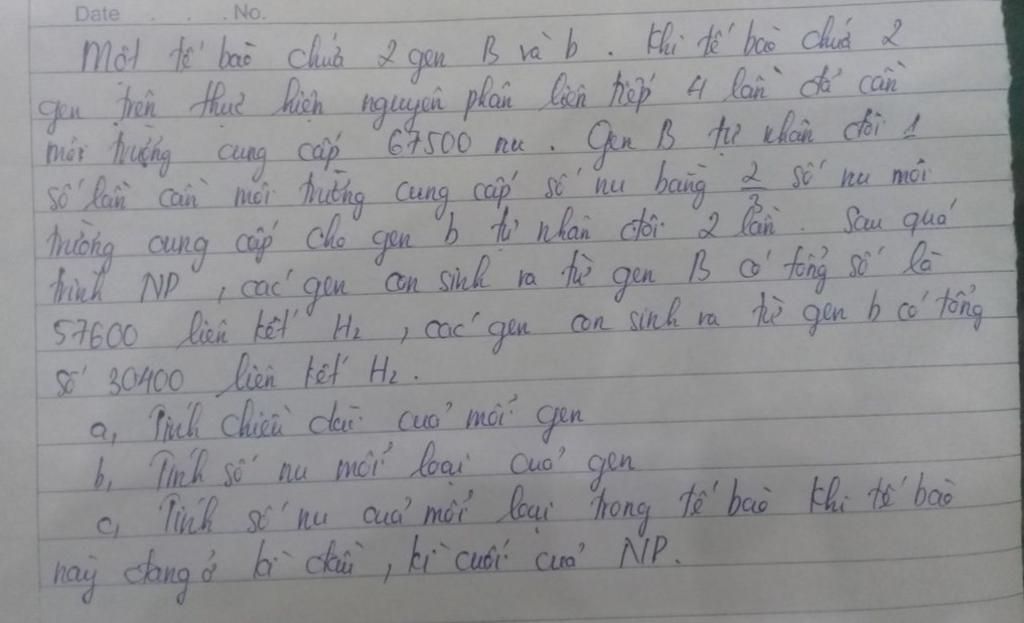 Date . . . No.
Một tế bào chứa 2 gen B và b. Khi tế bào chứa 2
gen trên thực hiện nguyên phân liên tiếp 4 lần đã cần
môi trường cung cấp 67500 nu. Gen B tự nhân đôi 1
số lần cần môi trường cung cấp số nu bằng 2/3 số nu môi
trường cung cấp cho gen b tự nhân đôi 2 lần. Sau quá
trình NP, các gen con sinh ra từ gen B có tổng số là
57600 liên kết H₂, các gen con sinh ra từ gen b có tổng
số 30400 liên kết H₂.
a, Tính chiều dài của mỗi gen
b, Tính số nu mỗi loại của gen
c, Tính số nu của mỗi loại trong tế bào khi tế bào
này đang ở kì đầu, kì cuối của NP.